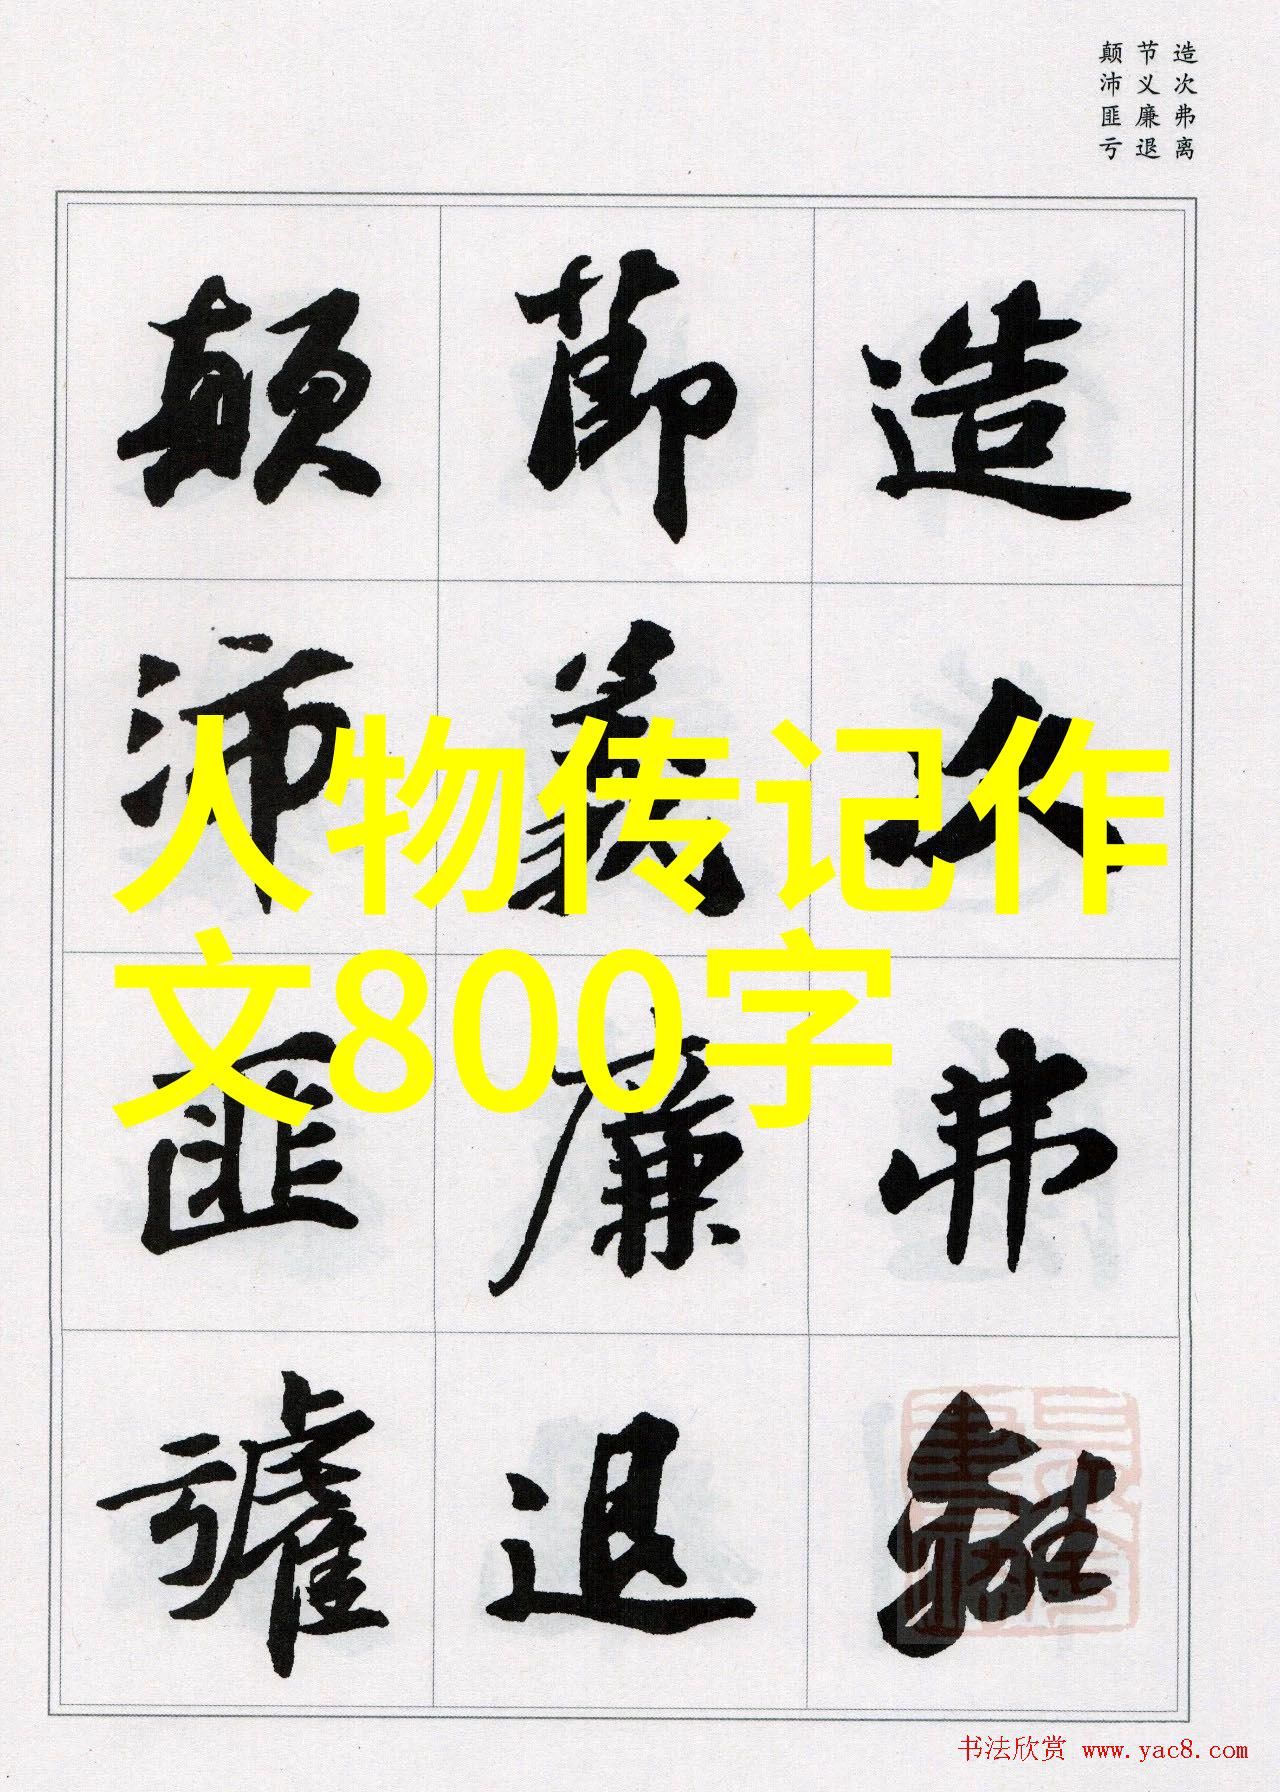 造次弗离
节义廉退
颠沛匪亏
造次弗離
節義廉退
顛沛匪虧
人物传记作
文800字
书法欣赏 www.yac8.com